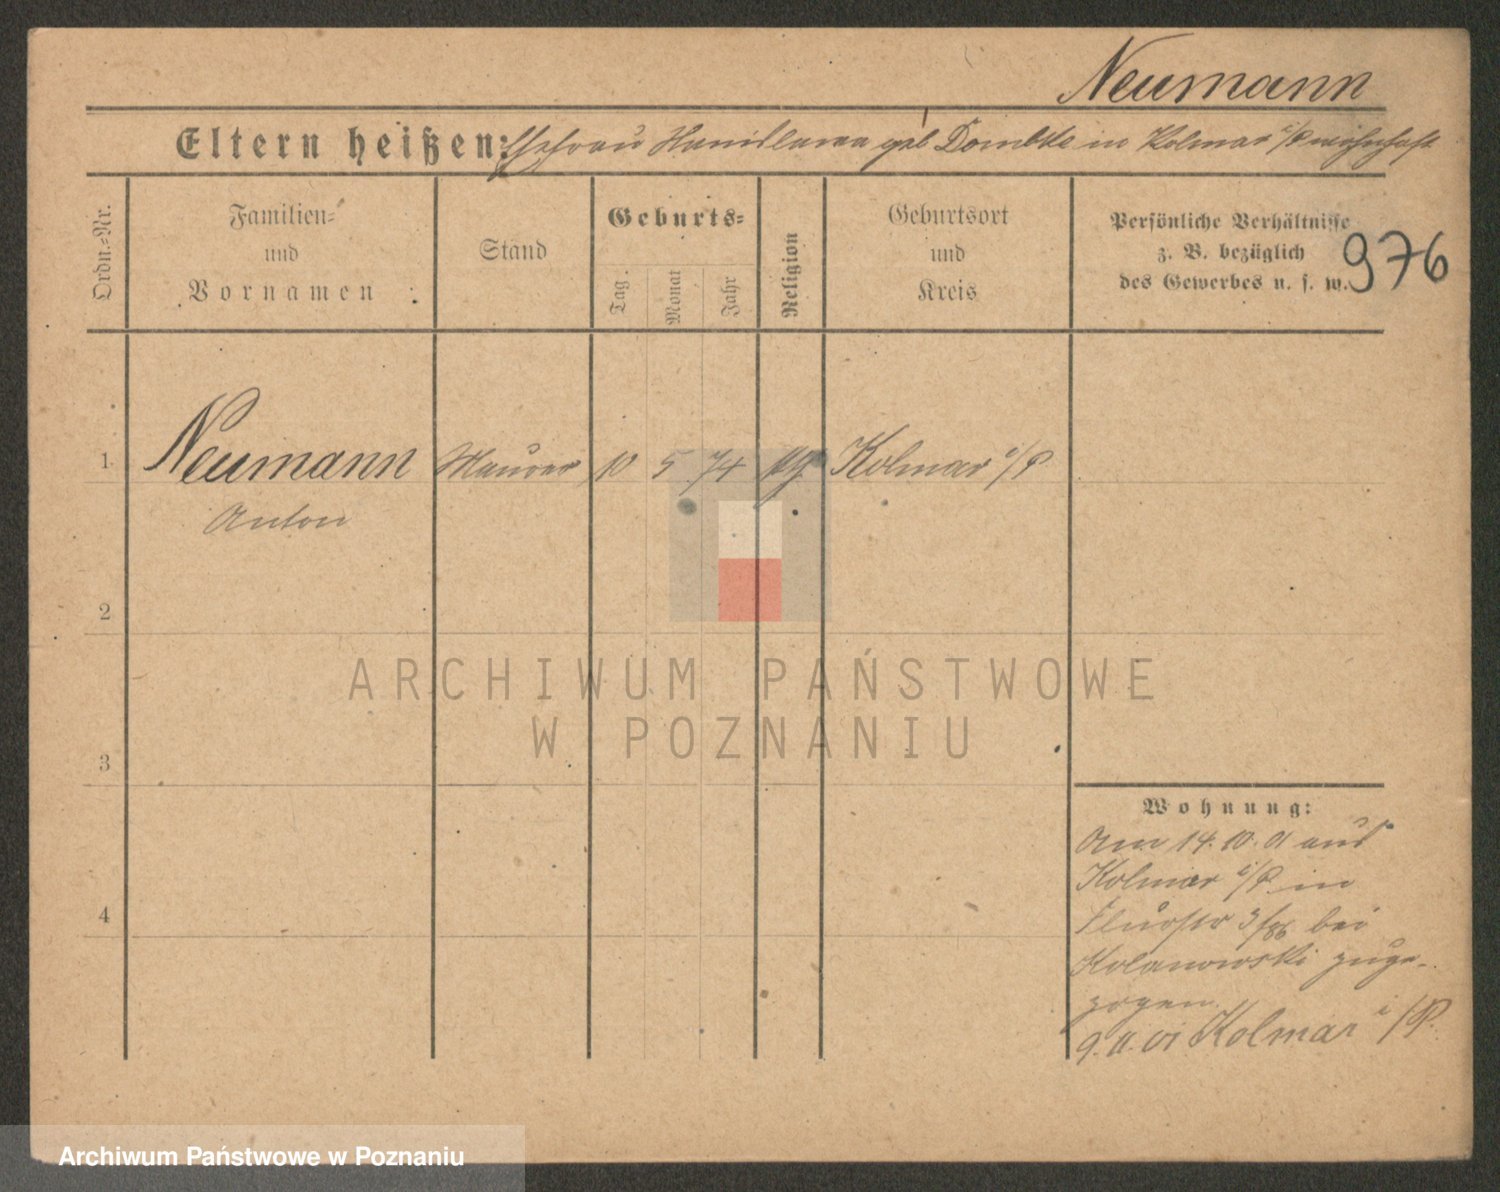 Neumann
Eltern heißen: Ehefrau geb Dombke in Kolmar i/P wohnhaft
Ordn.=Nr.
Familien= und Vornamen
Stand
Geburts=
Tag.
Monat
Jahr
Religion
Geburtsort und Kreis
Persönliche Verhältnisse
z. B. bezüglich
des Gewerbes u. s. w.
976
1 Neumann Maurer 10 5 74 Kolmar i/P
Anton
2
3
4
Wohnung:
Am 14.10.01 aus
Kolmar i/P in
bei
Kolanowski zuge-
zogen.
Kolmar i/P.
ARCHIWUM PAŃSTWOWE
W POZNANIU
Archiwum Państwowe w Poznaniu